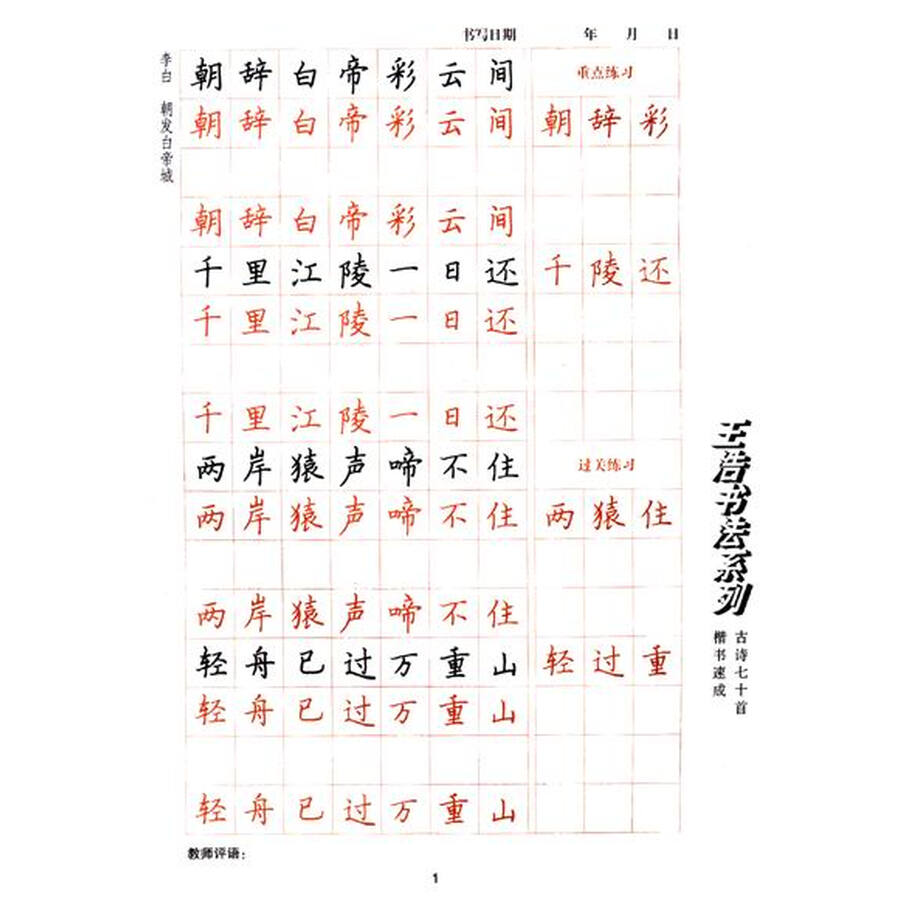 书写日期 年 月 日
李白 朝发白帝城
朝辞白帝彩云间 重点练习
朝辞白帝彩云间 朝辞彩
朝辞白帝彩云间
千里江陵一日还 千陵还
千里江陵一日还
千里江陵一日还
两岸猿声啼不住 过关练习
两岸猿声啼不住 两猿住
两岸猿声啼不住
轻舟已过万重山 轻过重
轻舟已过万重山
轻舟已过万重山
王浩书法系列
古诗七十首
楷书速成
教师评语：
1